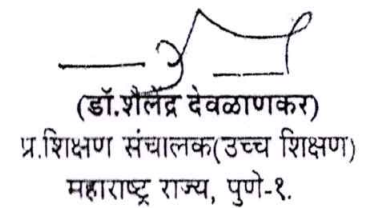 (डॉ.शैलेंद्र देवळाणकर)
प्र.शिक्षण संचालक(उच्च शिक्षण)
महाराष्ट्र राज्य, पुणे-१.